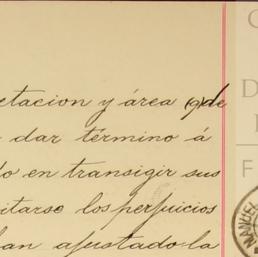 etacion y área (9) de
dar término á
do en transigir sus
itarse los perjuicios
han ajustado la
C
D
F
MANUEL